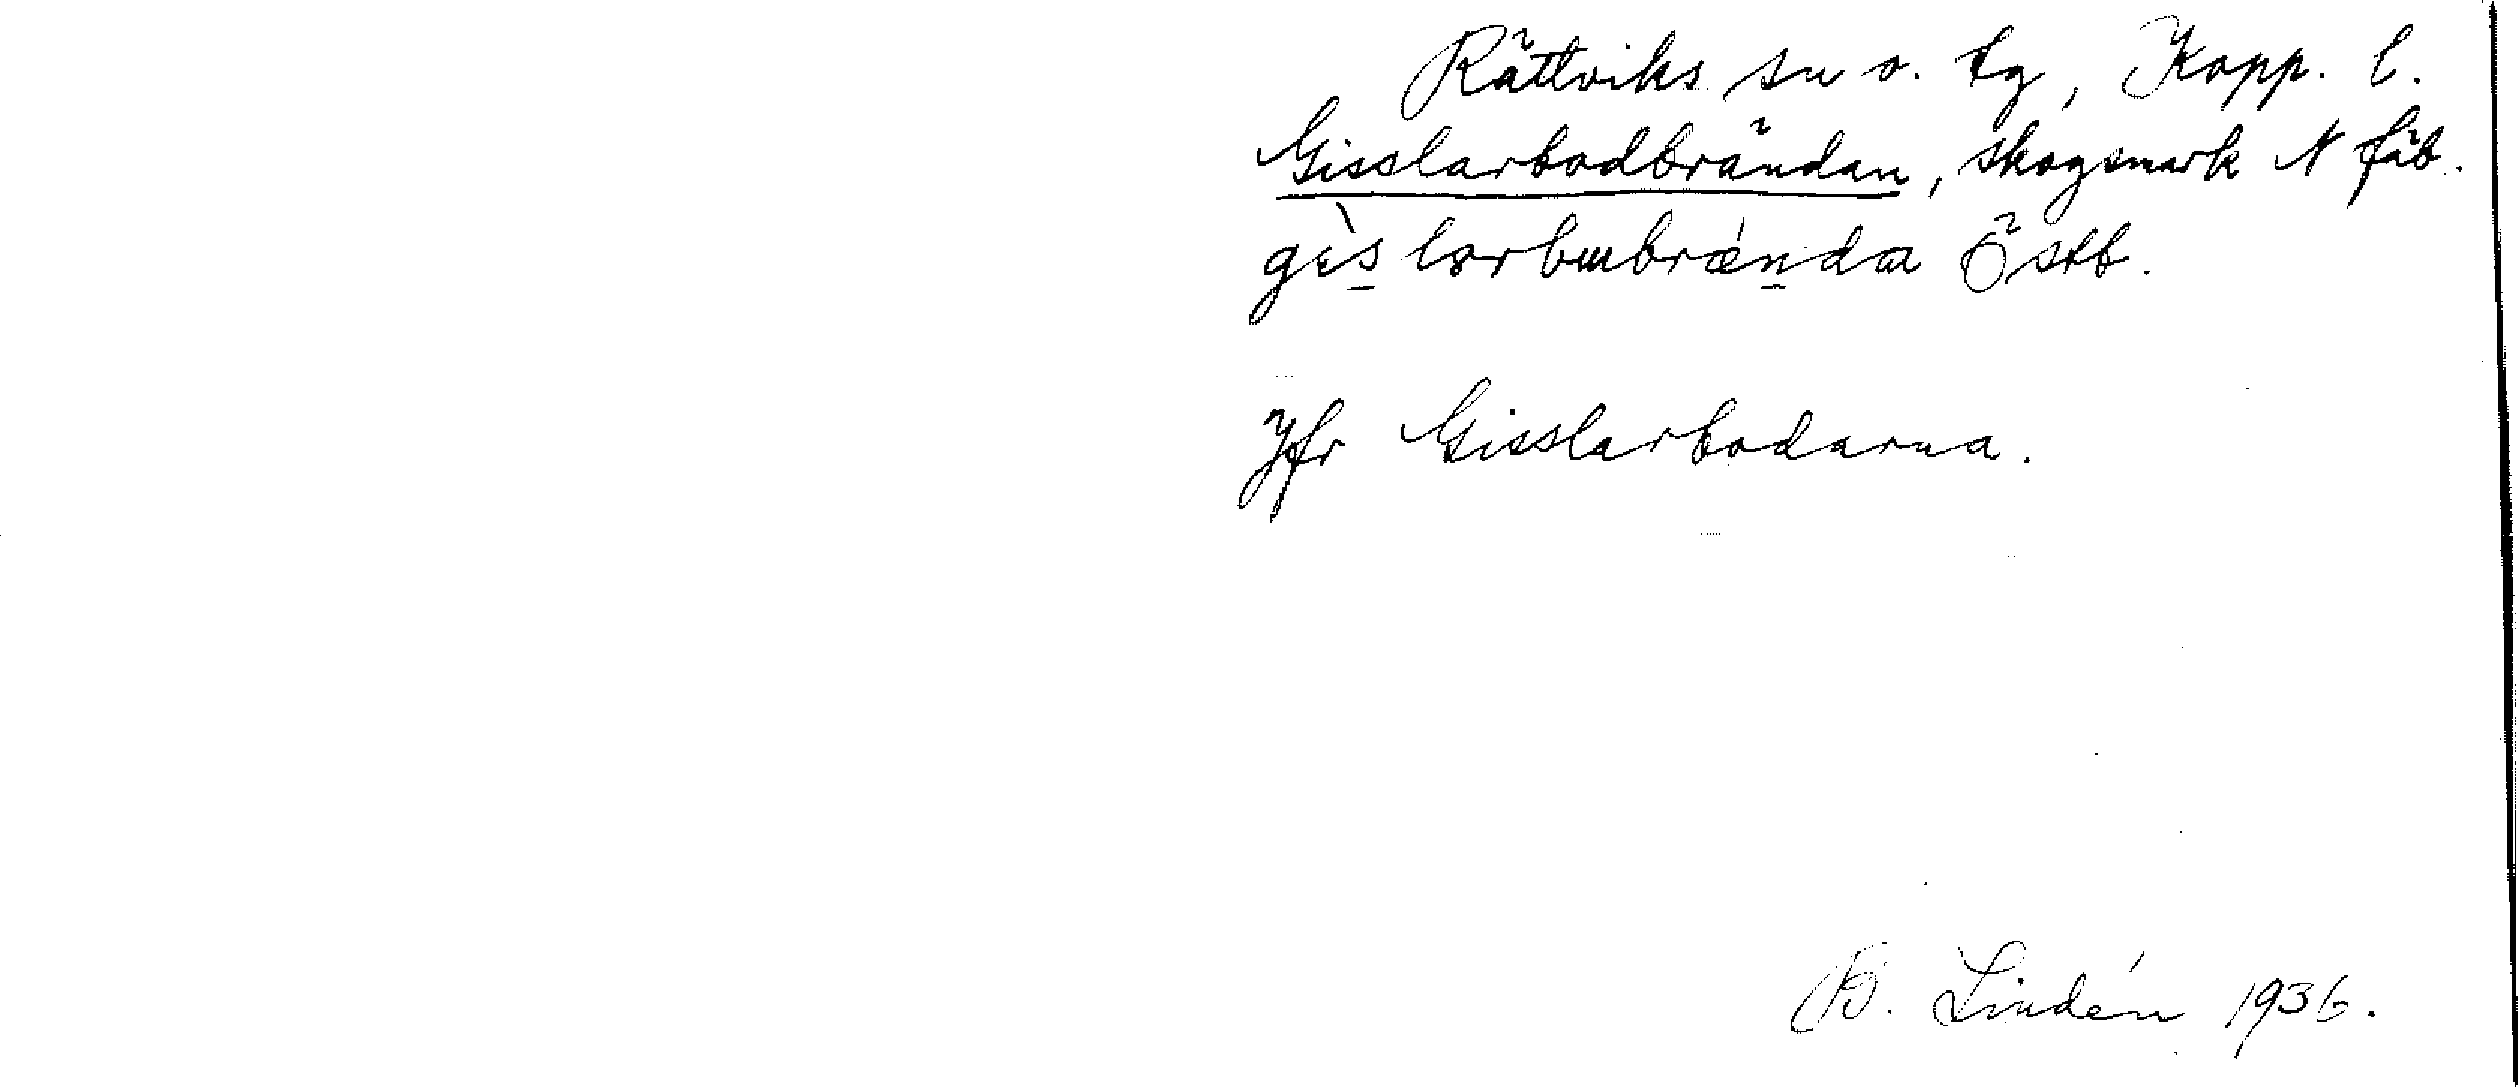 Rättviks sn o. tg, Kopp. l.
Gisslarbodbrändan, skogsmark N fäb.
gɪ̀s̲lərbɯbrǽn̲da Östb.
Jfr Gisslarbodarna.
B. Lindén 1936.